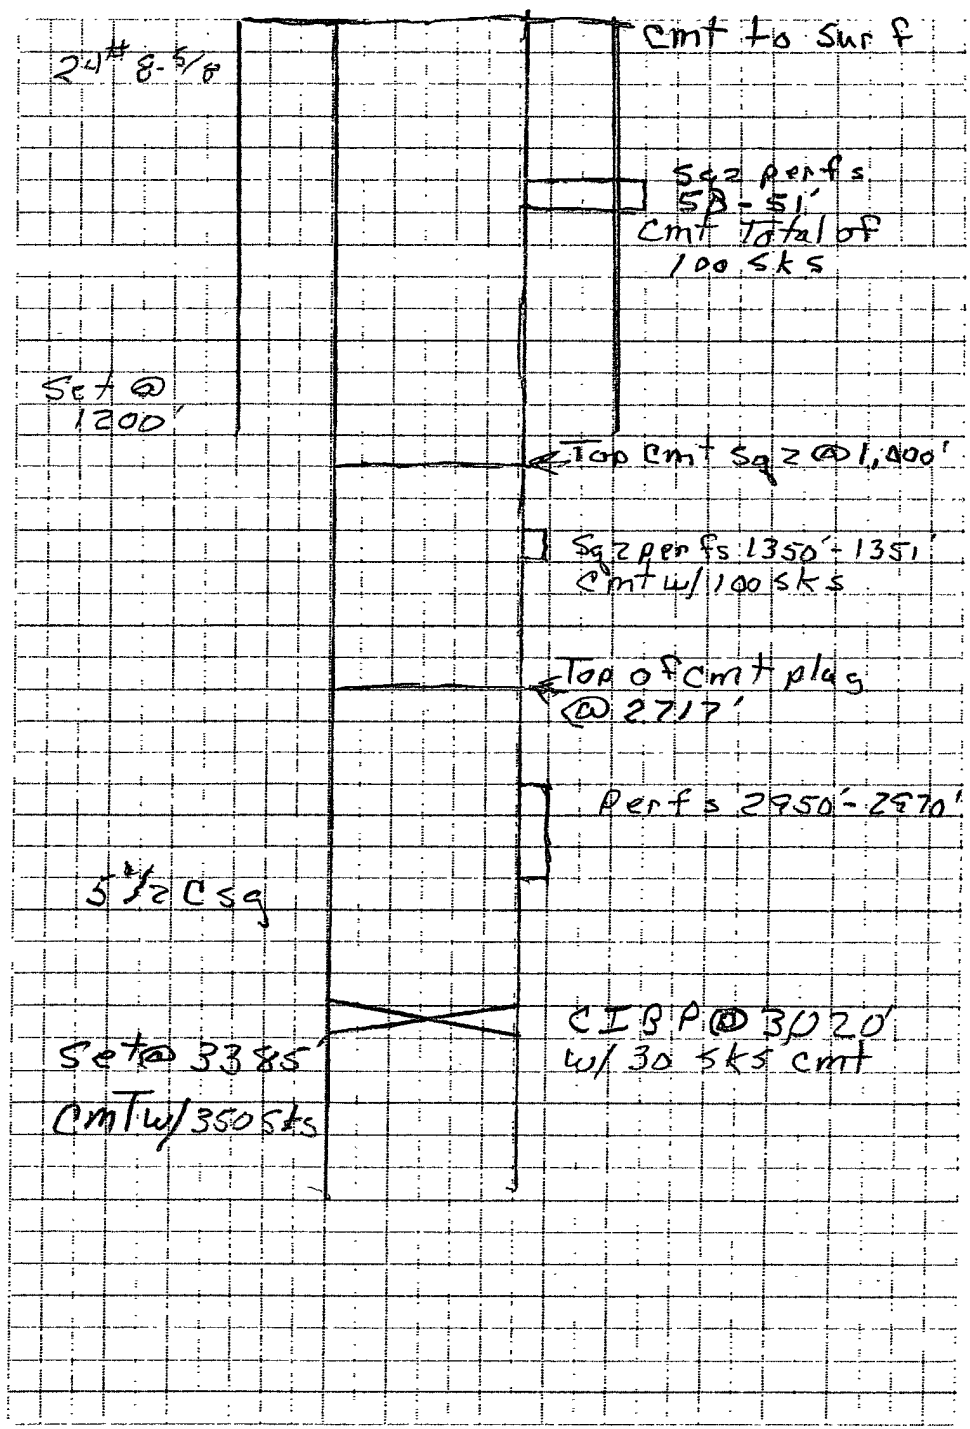 24# 8-5/8
Cmt to surf
Sqz perfs
50 - 51'
Cmt Total of
100 sks
Set @
1200'
Top Cmt Sqz @ 1,000'
Sqz perfs 1350'-1351'
Cmt w/ 100 sks
Top of cmt plug
@ 2717'
Perfs 2950'-2970'
5 1/2 Csg
CIBP @ 3,020'
w/ 30 sks cmt
Set @ 3385'
CmT w/ 350 sks